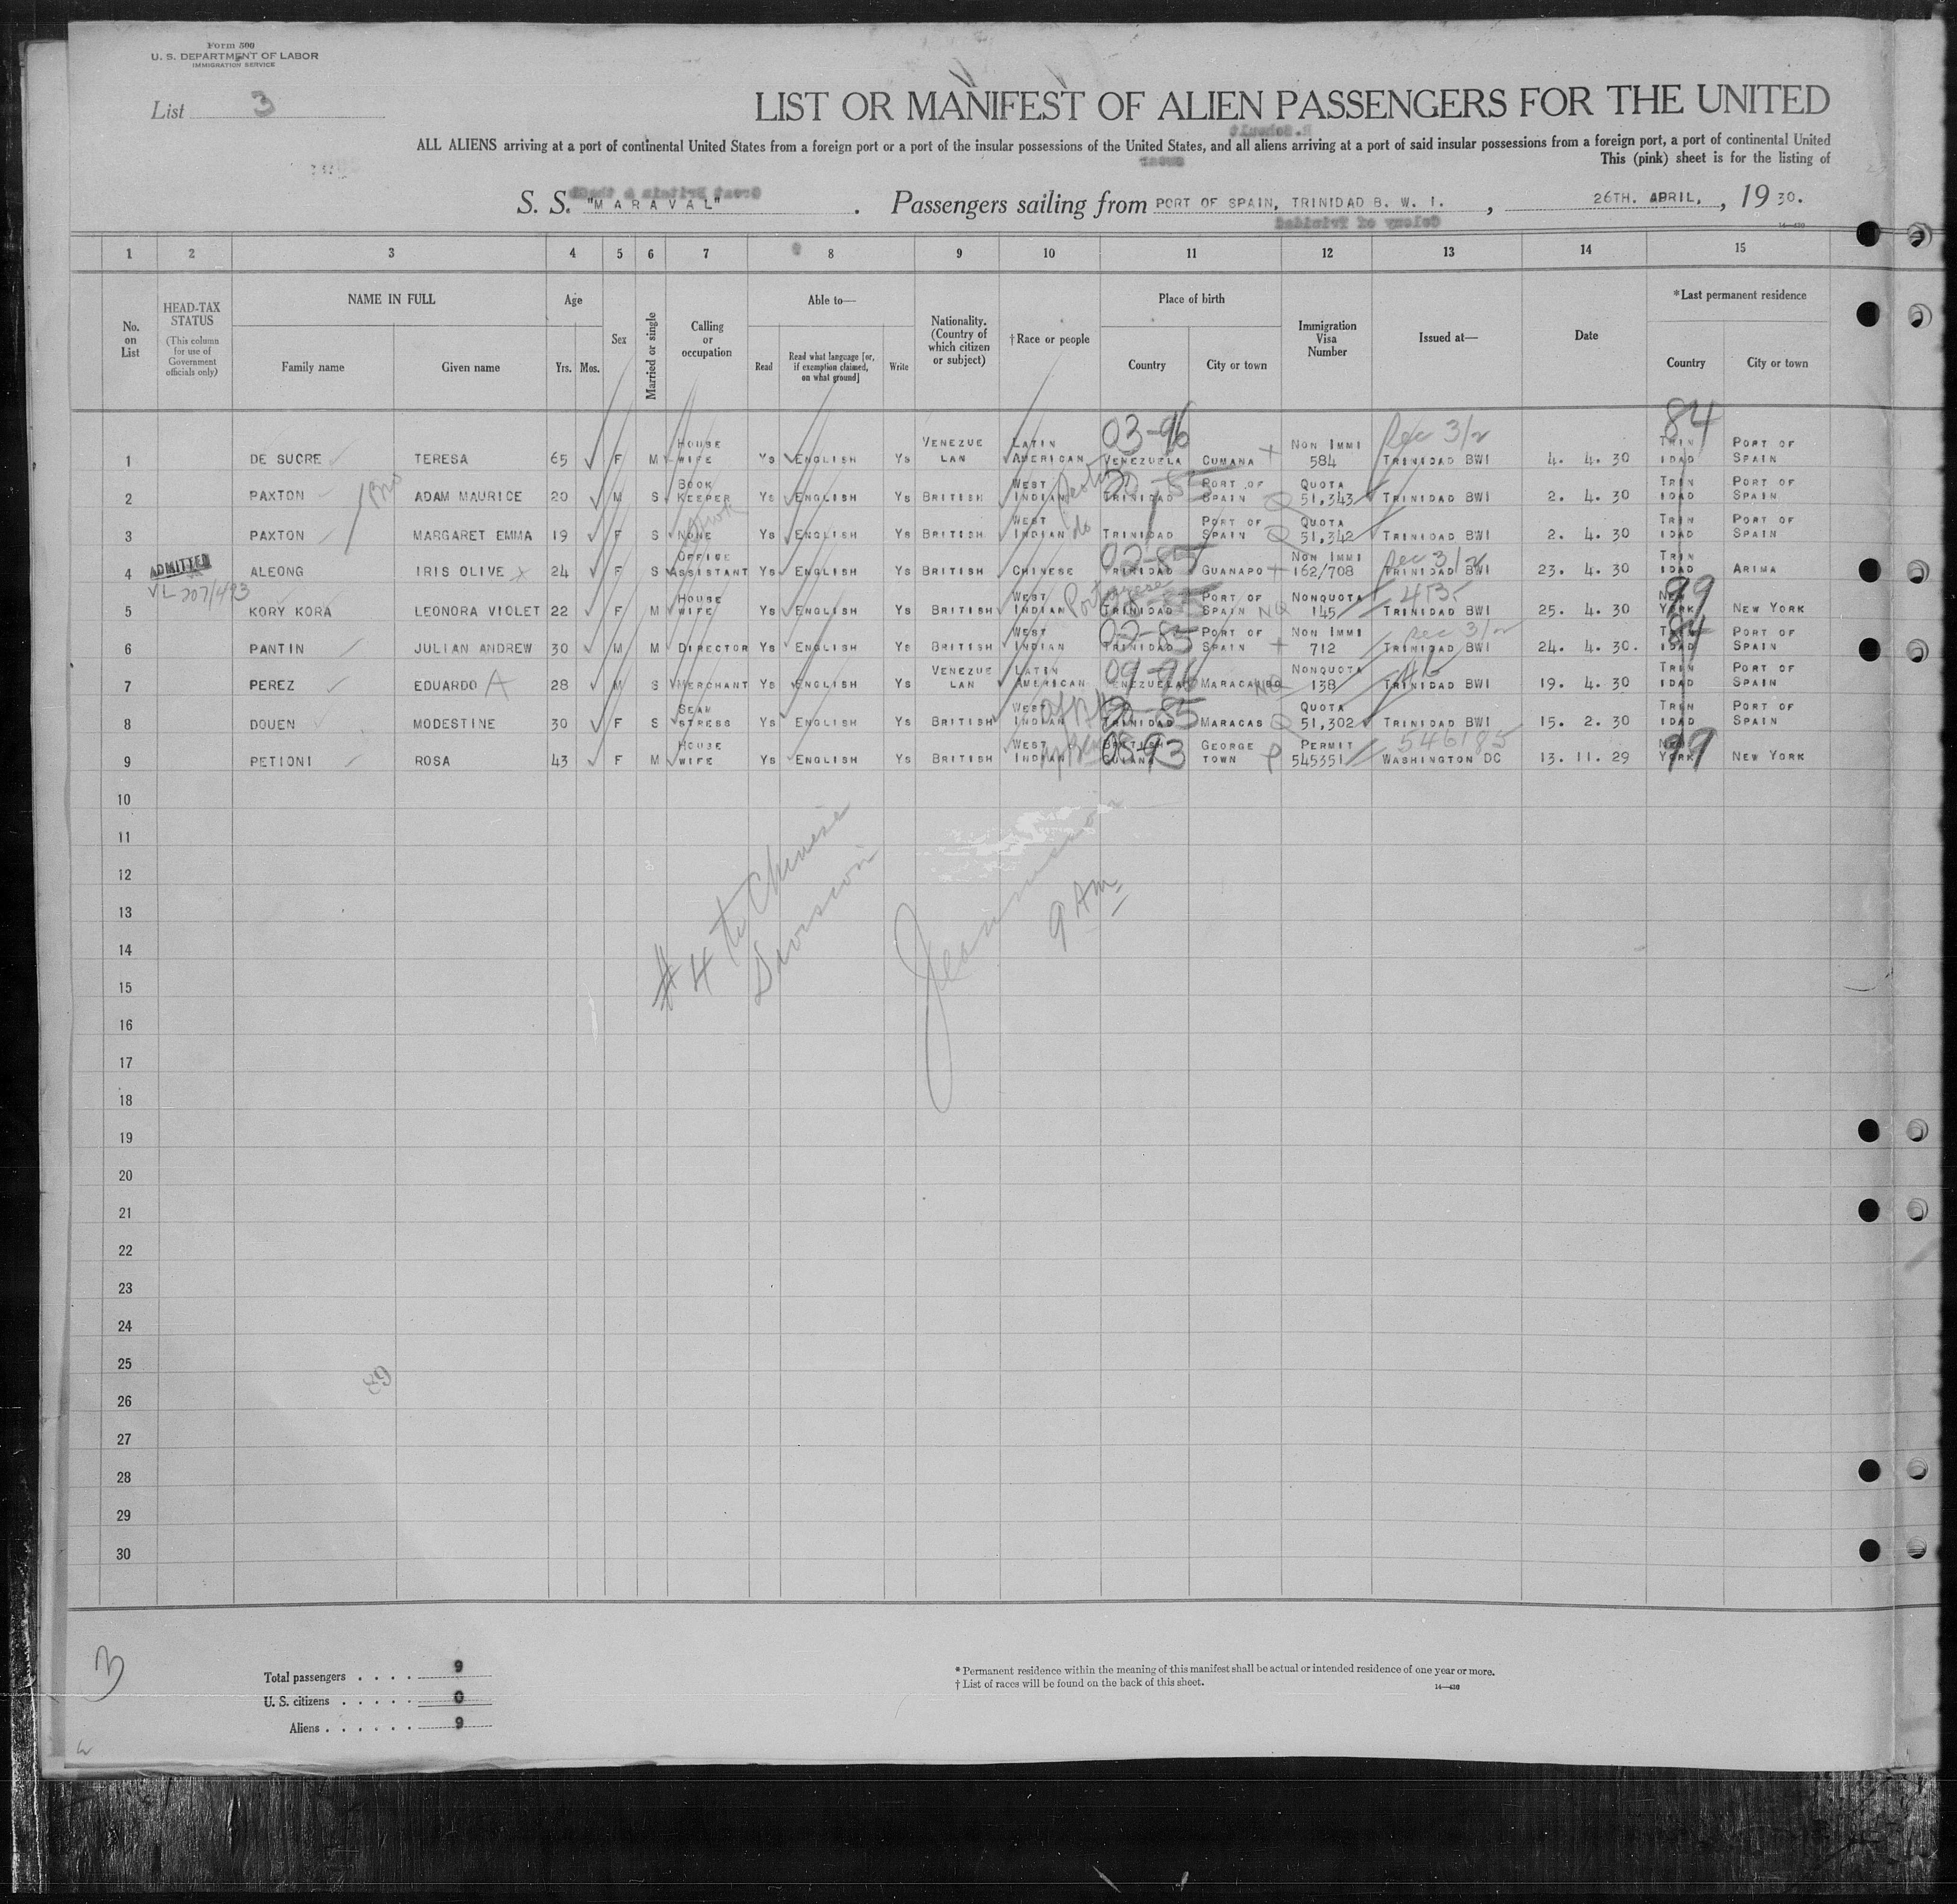 Form 500
U. S. DEPARTMENT OF LABOR
IMMIGRATION SERVICE
List 3
LIST OR MANIFEST OF ALIEN PASSENGERS FOR THE UNITED
ALL ALIENS arriving at a port of continental United States from a foreign port or a port of the insular possessions of the United States, and all aliens arriving at a port of said insular possessions from a foreign port, a port of continental United
This (pink) sheet is for the listing of
S. S. "MARAVAL" . Passengers sailing from PORT OF SPAIN, TRINIDAD B. W. I. , 26TH. APRIL, , 19 30.
14—430
1 2 3 4 5 6 7 8 9 10 11 12 13 14 15
No. on List
HEAD-TAX STATUS (This column for use of Government officials only)
NAME IN FULL
Family name Given name
Age
Yrs. Mos.
Sex
Married or single
Calling or occupation
Able to—
Read
Read what language [or, if exemption claimed, on what ground]
Write
Nationality. (Country of which citizen or subject)
†Race or people
Place of birth
Country City or town
Immigration Visa Number
Issued at—
Date
*Last permanent residence
Country City or town
1 DE SUCRE TERESA 65 F M HOUSE WIFE YS ENGLISH YS VENEZUE LAN LATIN AMERICAN 03-96 VENEZUELA CUMANA NON IMMI 584 Rec 3/2 TRINIDAD BWI 4. 4. 30 84 TRIN IDAD PORT OF SPAIN
2 PAXTON ADAM MAURICE 20 M S BOOK KEEPER YS ENGLISH YS BRITISH WEST INDIAN TRINIDAD PORT OF SPAIN Q QUOTA 51,343 TRINIDAD BWI 2. 4. 30 TRIN IDAD PORT OF SPAIN
3 PAXTON MARGARET EMMA 19 F S NONE YS ENGLISH YS BRITISH WEST INDIAN do TRINIDAD PORT OF SPAIN Q QUOTA 51,342 TRINIDAD BWI 2. 4. 30 TRIN IDAD PORT OF SPAIN
4 ADMITTED ALEONG IRIS OLIVE x 24 F S OFFICE ASSISTANT YS ENGLISH YS BRITISH CHINESE 02-85 TRINIDAD GUANAPO NON IMMI 162/708 Rec 3/2 TRINIDAD BWI 23. 4. 30 TRIN IDAD ARIMA
5 KORY KORA LEONORA VIOLET 22 F M HOUSE WIFE YS ENGLISH YS BRITISH WEST INDIAN Portuguese TRINIDAD PORT OF SPAIN NQ NONQUOTA 145 TRINIDAD BWI 25. 4. 30 99 NEW YORK NEW YORK
6 PANTIN JULIAN ANDREW 30 M M DIRECTOR YS ENGLISH YS BRITISH WEST INDIAN 02-85 TRINIDAD PORT OF SPAIN NON IMMI 712 Rec 3/2 TRINIDAD BWI 24. 4. 30. 84 TRIN IDAD PORT OF SPAIN
7 PEREZ EDUARDO A 28 M S MERCHANT YS ENGLISH YS VENEZUE LAN LATIN AMERICAN 09-96 VENEZUELA MARACAIBO NQ NONQUOTA 138 TRINIDAD BWI 19. 4. 30 TRIN IDAD PORT OF SPAIN
8 DOUEN MODESTINE 30 F S SEAM STRESS YS ENGLISH YS BRITISH WEST INDIAN TRINIDAD MARACAS Q QUOTA 51,302 TRINIDAD BWI 15. 2. 30 TRIN IDAD PORT OF SPAIN
9 PETIONI ROSA 43 F M HOUSE WIFE YS ENGLISH YS BRITISH WEST INDIAN BRITISH GUIANA GEORGE TOWN P PERMIT 545351 546185 WASHINGTON DC 13. 11. 29 99 NEW YORK NEW YORK
10
11
12
13
14
15
16
17
18
19
20
21
22
23
24
25
26
27
28
29
30
#4 to Chinese
Division
9 Am
3
Total passengers . . . . 9
U. S. citizens . . . . . 0
Aliens . . . . . . 9
* Permanent residence within the meaning of this manifest shall be actual or intended residence of one year or more.
† List of races will be found on the back of this sheet.
14—430